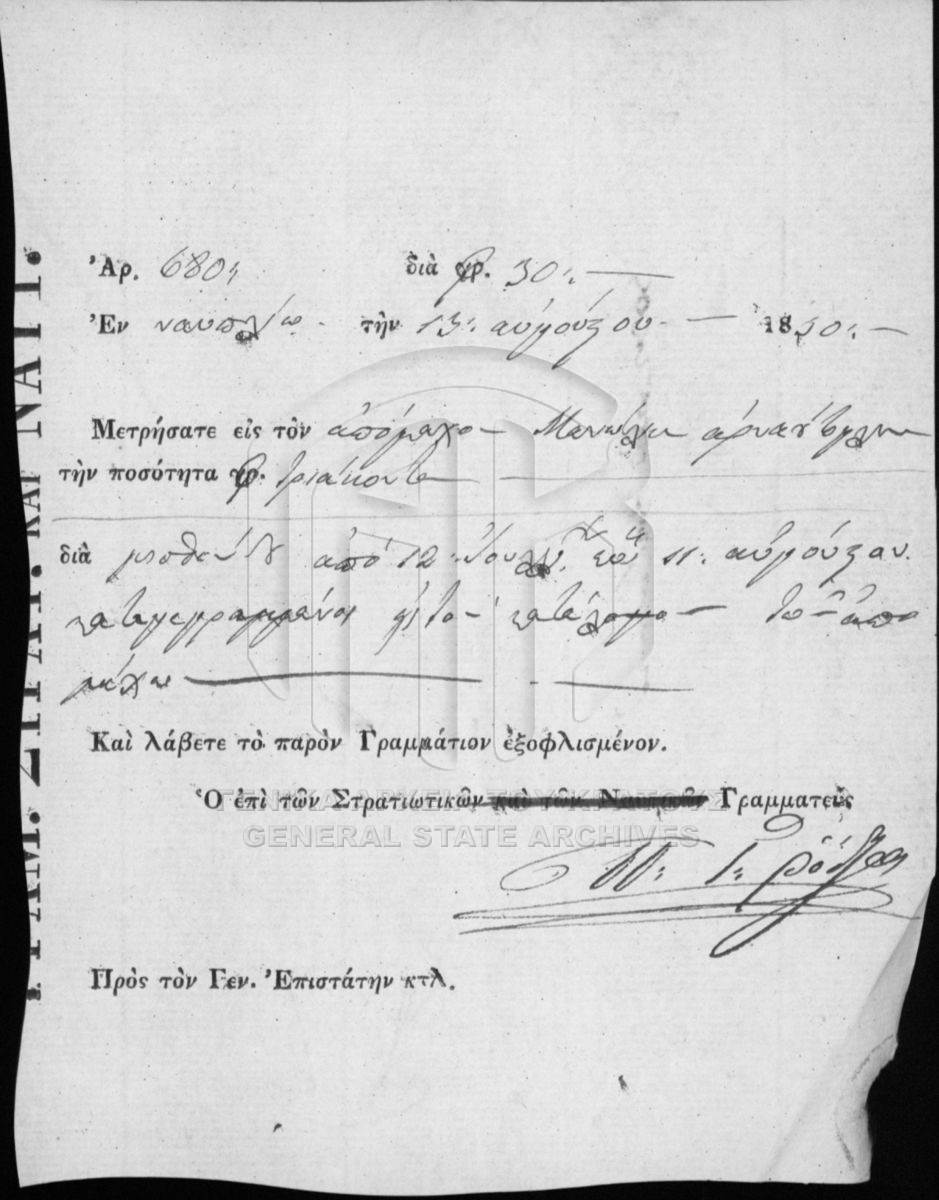 Ἀρ. 680, διὰ γρ. 30: —
Ἐν ναυπλίω. τὴν 13: αὐγούστου. — 1830: —
Μετρήσατε εἰς τὸν ἀπόμαχο— Μανώλην
τὴν ποσότητα γρ. τριάκοντα
διὰ ἀπὸ 12 Ἰουλίου ἕως 11: αὐγούστου.
εἰς τὸ— κατάλογο— το—ν ἀπο
μάχω
Καὶ λάβετε τὸ παρὸν Γραμμάτιον ἐξοφλισμένον.
Ὁ ἐπὶ τῶν Στρατιωτικῶν καὶ τῶν Ναυτικῶν Γραμματεὺς
Π. Γ. Ρόδιος
Πρὸς τὸν Γεν. Ἐπιστάτην κτλ.
ΓΡΑΜ. ΣΤΡΑΤ. ΚΑΙ ΝΑΥΤ.
ΓΕΝΙΚΑ ΑΡΧΕΙΑ ΤΟΥ ΚΡΑΤΟΥΣ
GENERAL STATE ARCHIVES